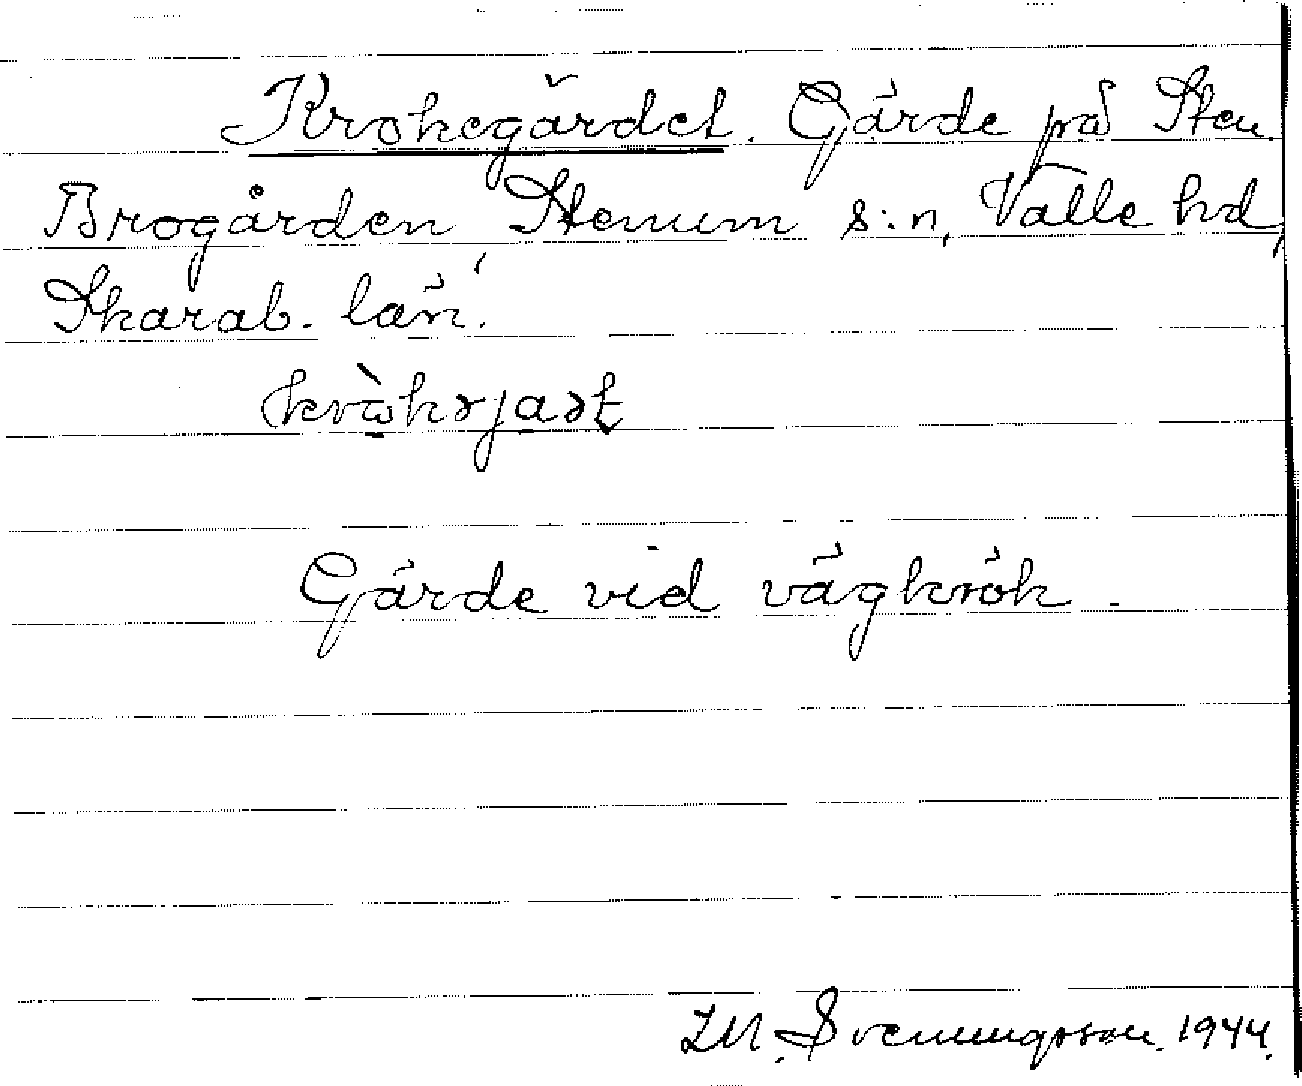 Krokegärdet. Gärde på Sten
Brogården, Stenum s:n, Valle hd,
Skarab. län.
Gärde vid vägkrök.
I.M. Svenningsson. 1944.